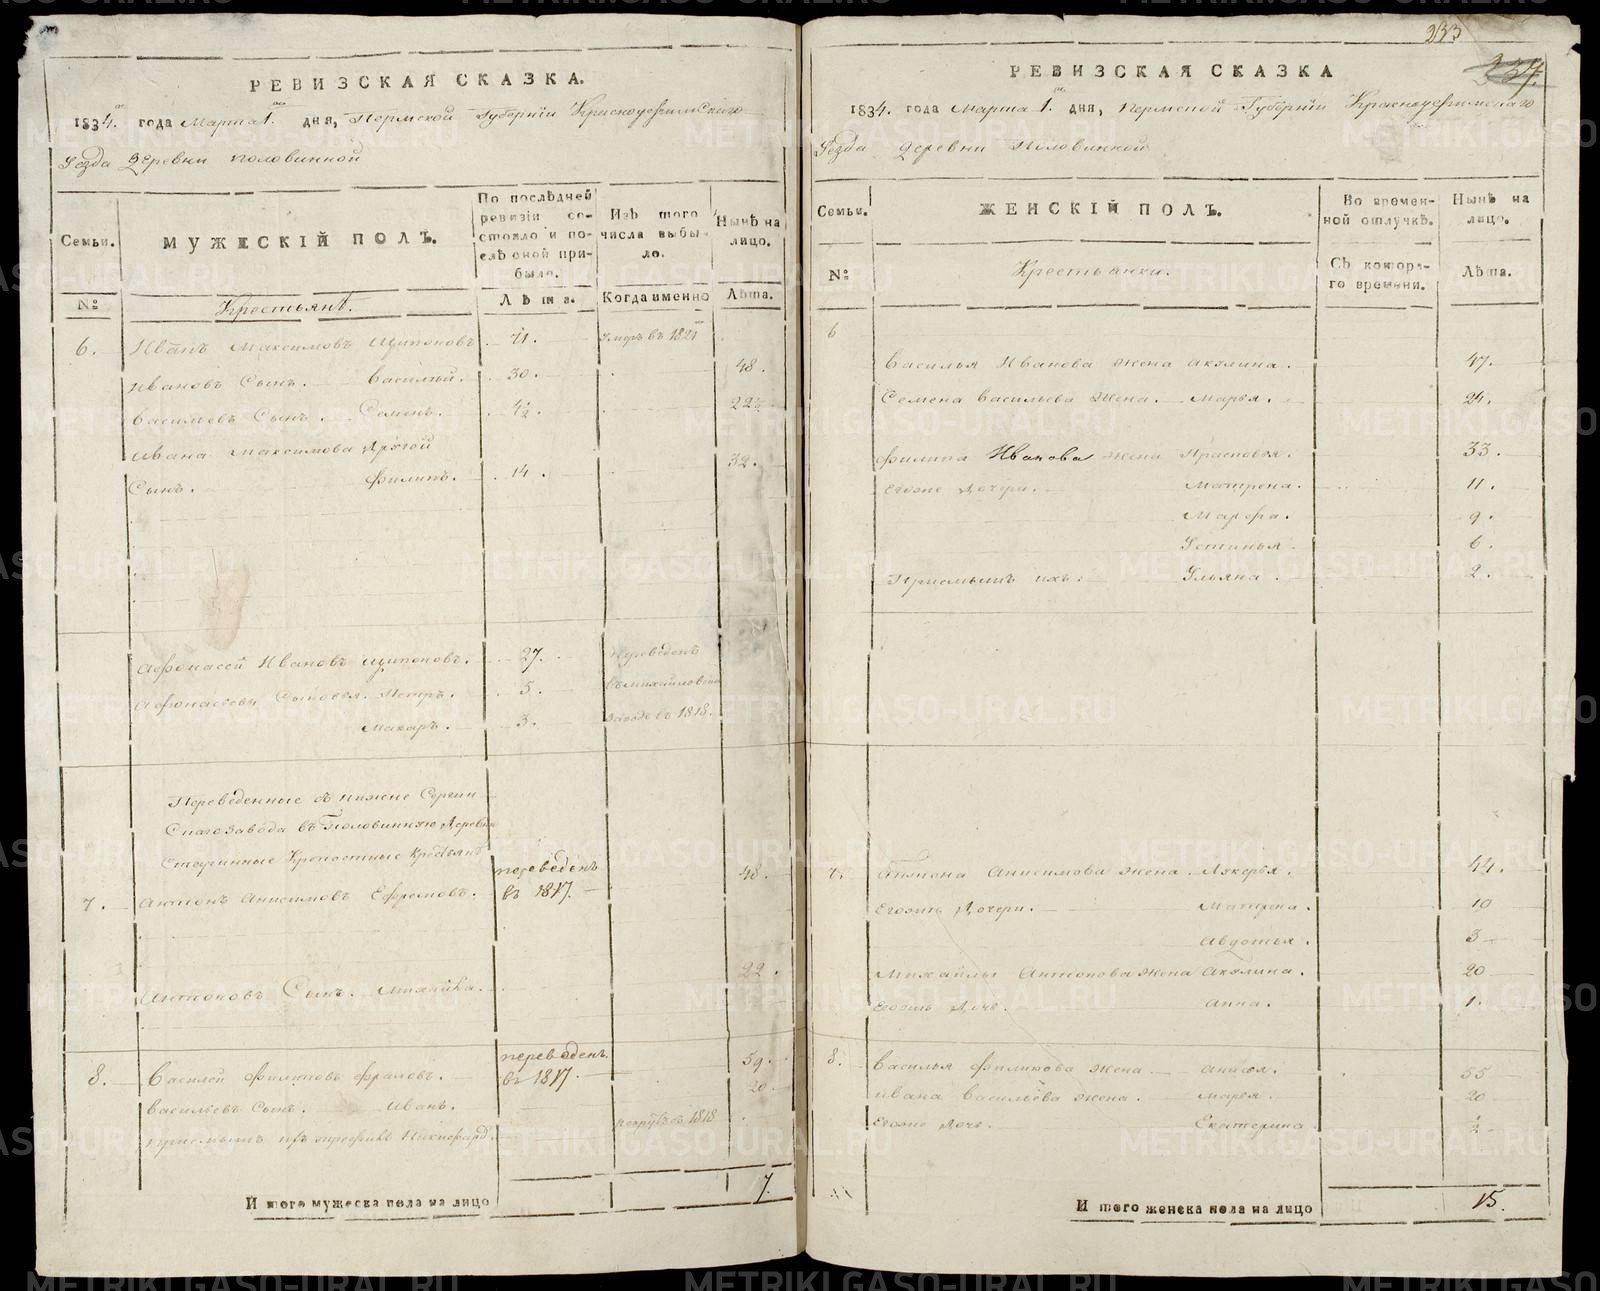 РЕВИЗСКАЯ СКАЗКА.
1834. года Марта 1. дня, Пермской Губернiи Красноуфимскаго
Уезда Деревни Половинной
Семьи.
МУЖЕСКIЙ ПОЛЪ.
По послѣдней ревизiи состояло и послѣ оной прибыло.
Изъ того числа выбыло.
Нынѣ на лицо.
№
Крестьянѣ.
Лѣта.
Когда именно
Лѣта.
6. Иванъ Максимовъ Щипоновъ . 71. Умръ въ 1821
Ивановъ Сынъ. Василий. 30. 48.
Васильевъ Сынъ. Семенъ. 4½. 22½
Ивана Максимова Другой
Сынъ. Филипъ. 14. 32.
Афонасей Ивановъ Щипоновъ. 27. Переведенъ
Афонасьевы Сыновья. Петръ. 5. въ Михайловской
Макаръ. 3. заводъ въ 1818.
Переведенные Съ Нижне Сергин
Скаго Завода въ Половинную Деревню
Крепостные Крестьянѣ
7. Антонъ Анисимовъ Ефремовъ. переведенъ въ 1817. 48.
Антоновъ Сынъ. Михайла. 22.
8. Василей Филиповъ Фроловъ. переведенъ въ 1817. 59.
Васильевъ Сынъ. Иванъ. 20.
Приемышъ Никифоръ. въ 1818
И того мужеска пола на лицо 7.
233
237.
РЕВИЗСКАЯ СКАЗКА
1834. года Марта 1. дня, Пермской Губернiи Красноуфимскаго
Уезда Деревни Половинной
Семьи.
ЖЕНСКIЙ ПОЛЪ.
Во временной отлучкѣ.
Нынѣ на лицо.
№
Крестьянки.
Съ котораго времени.
Лѣта.
6
Василья Иванова жена Акулина. 47.
Семена Васильева Жена. Марья. 24.
Филипа Иванова жена Прасковья. 33.
Егоже Дочери. Матрена. 11.
Марфа. 9.
Устинья. 6.
Приемышъ ихъ. Ульяна. 2.
7. Антона Анисимова жена Лукерья. 44.
Дочери. Матрена. 10
Авдотья. 3
Михайлы Антонова жена Акулина. 20
Дочь. Анна. 1.
8. Василья Филипова жена Анисья. 55
Ивана Васильева жена. Марья. 20
Егоже Дочь. Екатерина. ½
И того женска пола на лицо 15.
METRIKI.GASO-URAL.RU